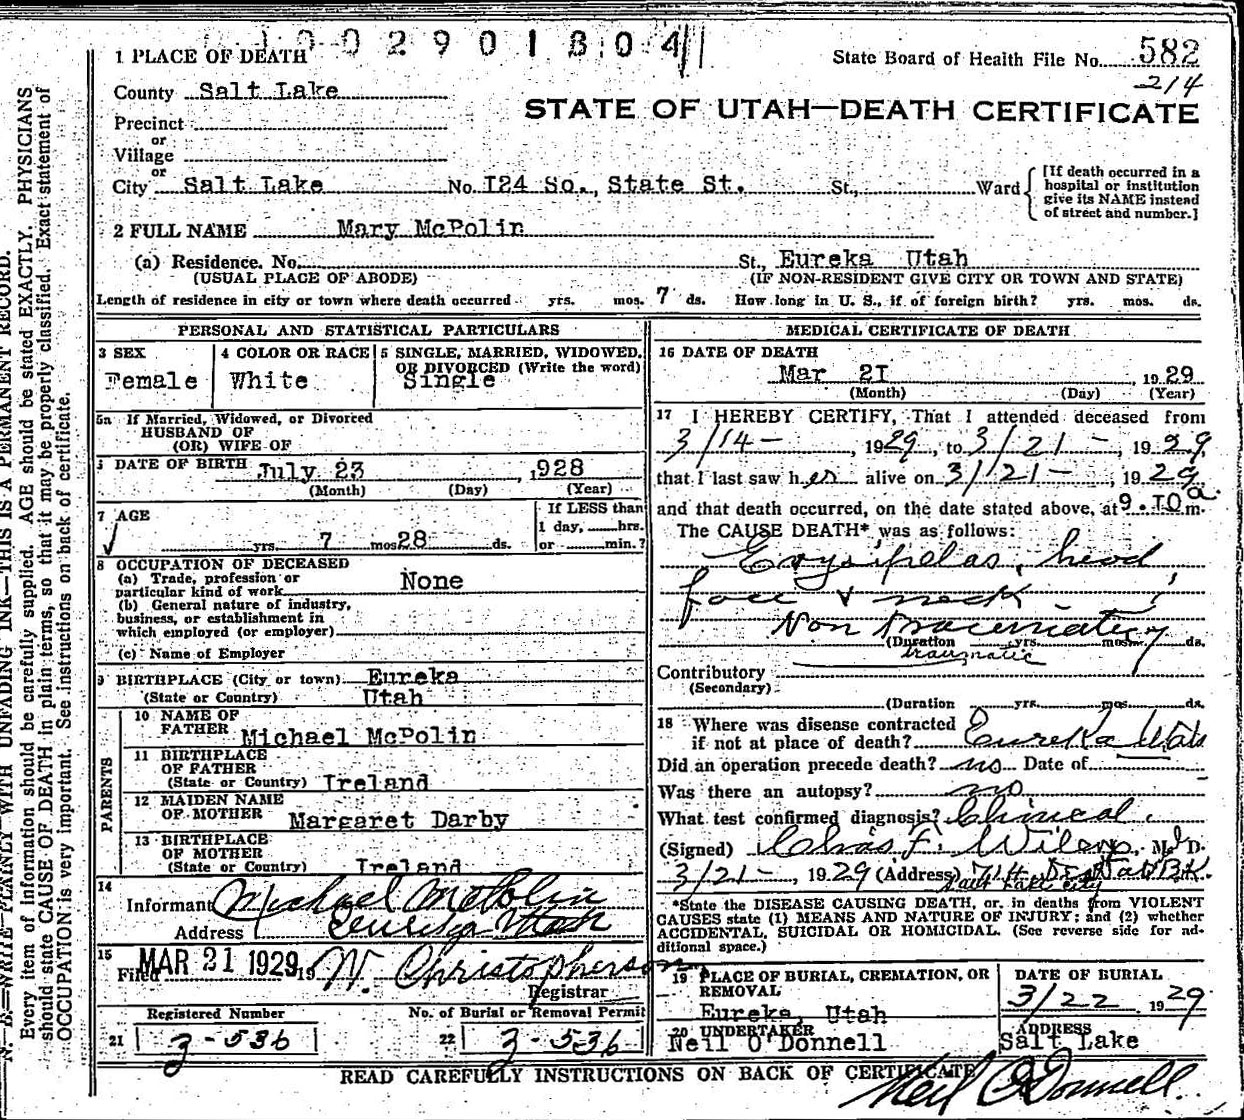 1 0 0 2 9 0 1 8 0 4
1 PLACE OF DEATH
State Board of Health File No. 582
214
County Salt Lake
STATE OF UTAH—DEATH CERTIFICATE
Precinct
or
Village
or
City Salt Lake No. I24 So., State St. St., Ward
[If death occurred in a hospital or institution give its NAME instead of street and number.]
2 FULL NAME Mary McPolin
(a) Residence. No. St., Eureka Utah
(USUAL PLACE OF ABODE) (IF NON-RESIDENT GIVE CITY OR TOWN AND STATE)
Length of residence in city or town where death occurred yrs. mos. 7 ds. How long in U. S., if of foreign birth? yrs. mos. ds.
PERSONAL AND STATISTICAL PARTICULARS
3 SEX
Female
4 COLOR OR RACE
White
5 SINGLE, MARRIED, WIDOWED,
OR DIVORCED (Write the word)
Single
5a If Married, Widowed, or Divorced
HUSBAND OF
(OR) WIFE OF
DATE OF BIRTH July 23, 1928
(Month) (Day) (Year)
7 AGE
yrs. 7 mos 28 ds.
If LESS than
1 day, hrs.
or min.?
8 OCCUPATION OF DECEASED
(a) Trade, profession or
particular kind of work None
(b) General nature of industry,
business, or establishment in
which employed (or employer)
(c) Name of Employer
9 BIRTHPLACE (City or town) Eureka
(State or Country) Utah
PARENTS
10 NAME OF
FATHER Michael McPolin
11 BIRTHPLACE
OF FATHER
(State or Country) Ireland
12 MAIDEN NAME
OF MOTHER Margaret Darby
13 BIRTHPLACE
OF MOTHER
(State or Country) Ireland
14
Informant Michael McPolin
Address Eureka Utah
15
Filed MAR 21 1929 19 W. Christopherson
Registrar
Registered Number No. of Burial or Removal Permit
21 3-536 22 3-536
MEDICAL CERTIFICATE OF DEATH
16 DATE OF DEATH
Mar 2I, 1929
(Month) (Day) (Year)
17 I HEREBY CERTIFY, That I attended deceased from
3/14-, 1929, to 3/21-, 1929,
that I last saw her alive on 3/21-, 1929,
and that death occurred, on the date stated above, at 9.I0 a m.
The CAUSE DEATH* was as follows:
Erysipelas, head,
face & neck
Non
(Duration yrs. mos. ds.
traumatic
Contributory
(Secondary)
(Duration yrs. mos. ds.
18 Where was disease contracted
if not at place of death? Eureka Utah
Did an operation precede death? no Date of
Was there an autopsy? no
What test confirmed diagnosis? Clinical.
(Signed) Chas F. M. D.
3/21-, 1929 (Address)
Salt Lake City
*State the DISEASE CAUSING DEATH, or, in deaths from VIOLENT
CAUSES state (1) MEANS AND NATURE OF INJURY; and (2) whether
ACCIDENTAL, SUICIDAL OR HOMICIDAL. (See reverse side for ad-
ditional space.)
19 PLACE OF BURIAL, CREMATION, OR
REMOVAL
Eureka, Utah
DATE OF BURIAL
3/22, 1929
20 UNDERTAKER
Neil O'Donnell
ADDRESS
Salt Lake
READ CAREFULLY INSTRUCTIONS ON BACK OF CERTIFICATE
Neil O'Donnell.
N. B.—WRITE PLAINLY WITH UNFADING INK—THIS IS A PERMANENT RECORD.
Every item of information should be carefully supplied. AGE should be stated EXACTLY. PHYSICIANS
should state CAUSE OF DEATH in plain terms, so that it may be properly classified. Exact statement of
OCCUPATION is very important. See instructions on back of certificate.